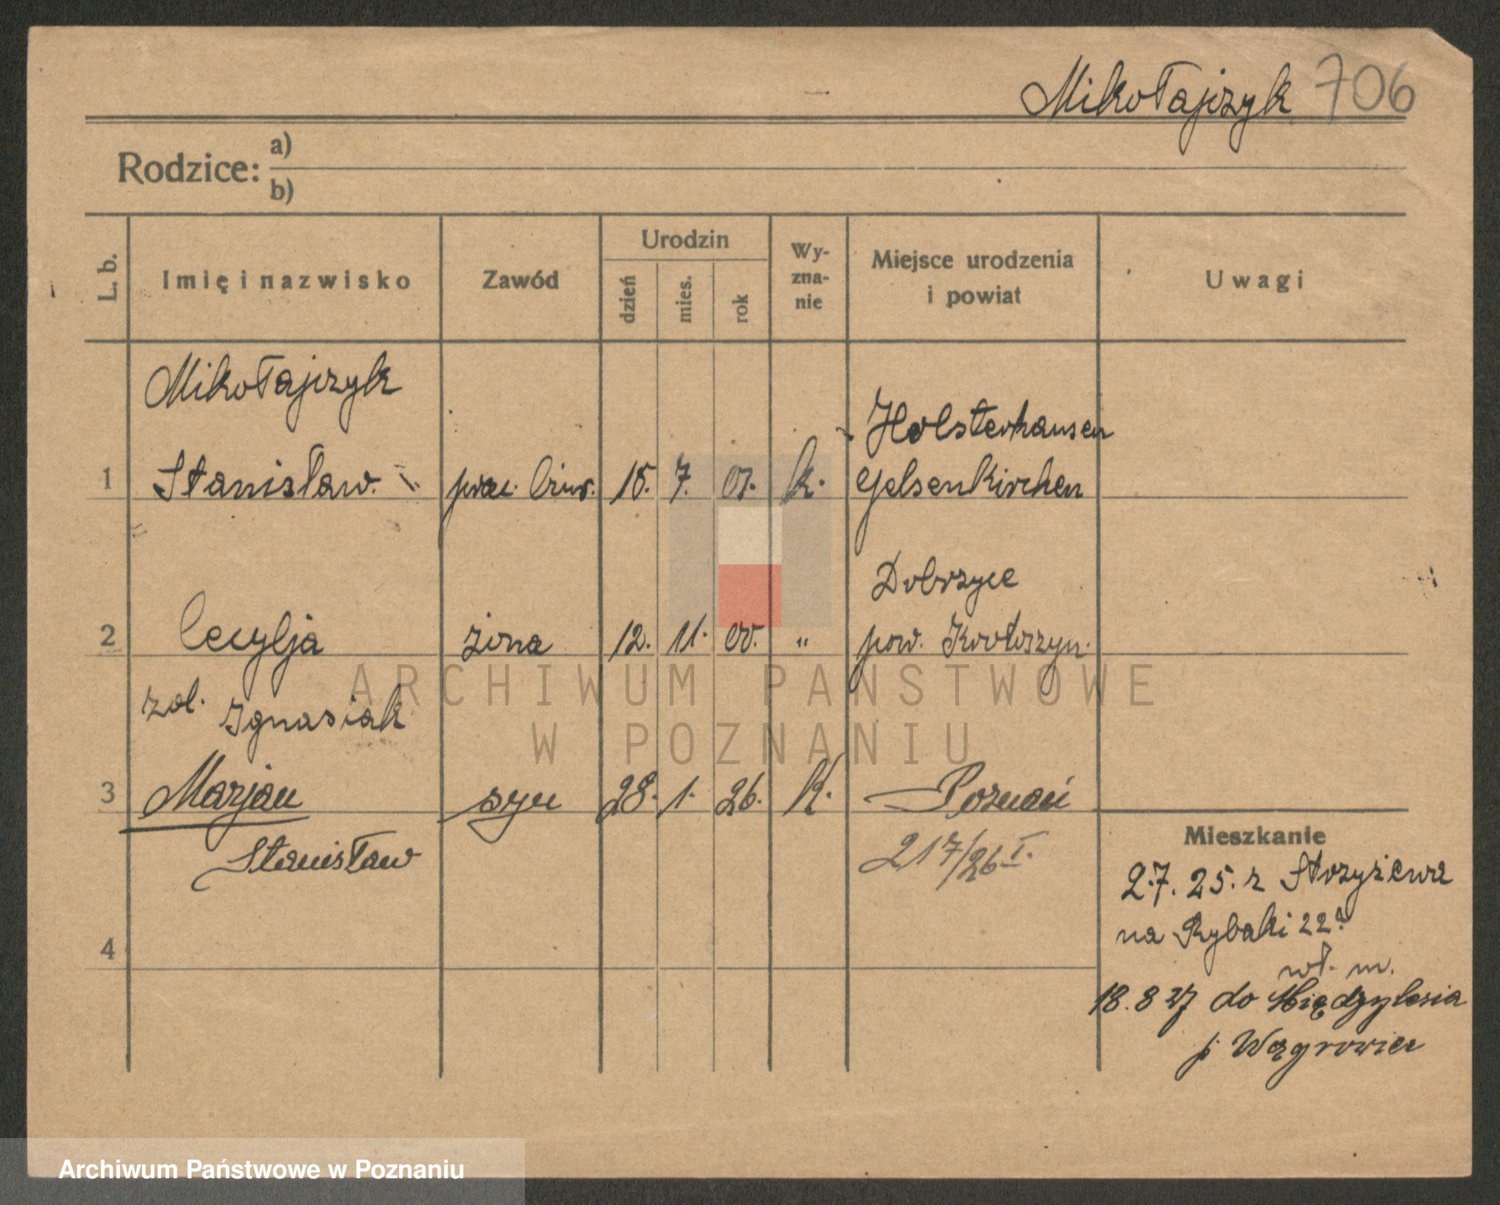 Mikołajczyk 706
Rodzice: a)
b)
L. b.
Imię i nazwisko
Zawód
Urodzin
dzień
mies.
rok
Wy-
zna-
nie
Miejsce urodzenia
i powiat
Uwagi
Mikołajczyk
Holsterhausen
1 Stanisław. prac. 15. 7. 01. k. Gelsenkirchen
Dobrzyce
2 Cecylja żona 12. 11. 00. " pow. Krotoszyn.
zol. Ignasiak
3 Marjan syn 28. 1. 26. K. Poznań
Stanisław 217/26 I.
4
Mieszkanie
2.7.25. z Strzyżewa
na Rybaki 22a
wł. m.
18.8 27 do Międzylesia
p. Wągrowiec
ARCHIWUM PAŃSTWOWE
W POZNANIU
Archiwum Państwowe w Poznaniu